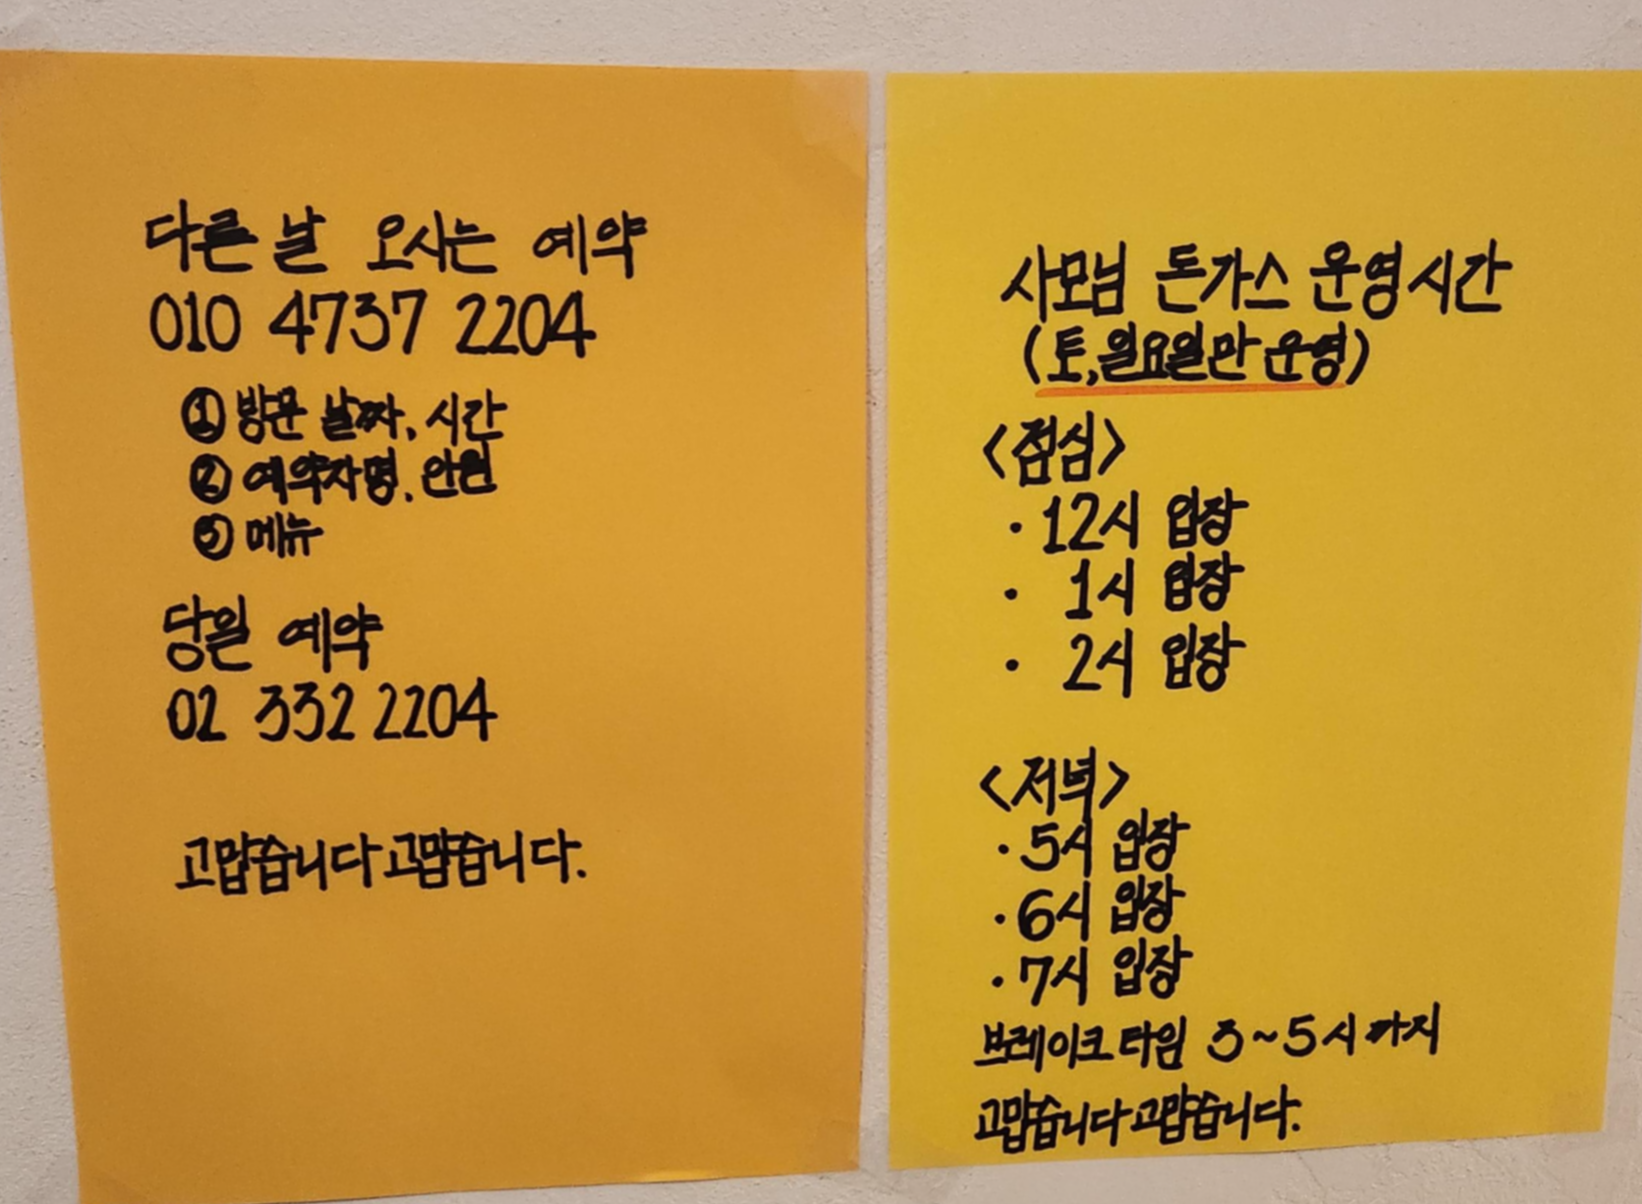 다른 날 오시는 예약
010 4737 2204
① 방문 날짜, 시간
② 예약자명, 인원
③ 메뉴
당일 예약
02 332 2204
고맙습니다 고맙습니다.
사모님 돈가스 운영시간
(토,일요일만 운영)
<점심>
· 12시 입장
· 1시 입장
· 2시 입장
<저녁>
· 5시 입장
· 6시 입장
· 7시 입장
브레이크 타임 3~5시 까지
고맙습니다 고맙습니다.